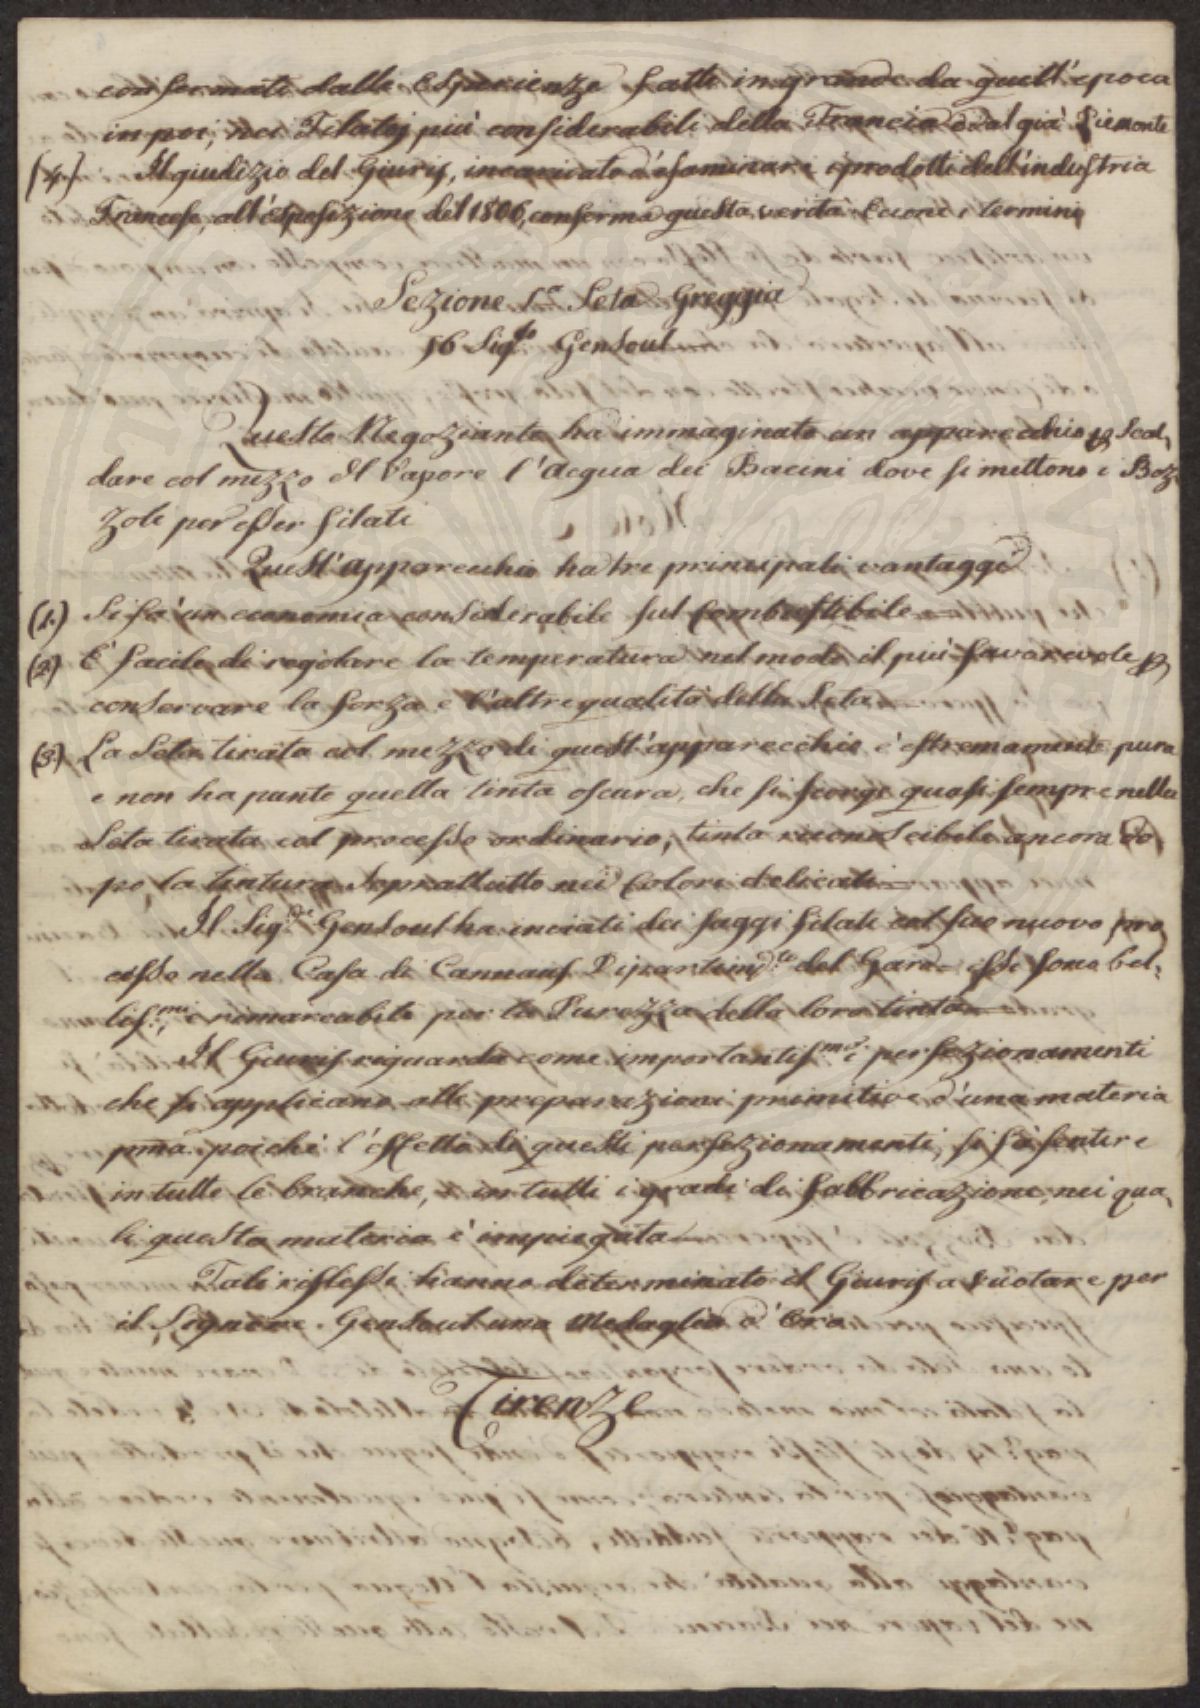 confermati dalle Esperienze fatte in grande da quell'epoca
in poi, nei Filatoj più considerabili della Francia e dal già Piemonte
(4.) Il giudizio del Giurij, incaricato d'esaminare i prodotti dell'industria
Francese, all'esposizione del 1806, conferma questa verità. Eccone i termini
Sezione 1.a Seta Greggia
16 Sig.r Gensoul
Questo Negoziante ha immaginato un apparecchio p. Scal,
dare col mezzo del Vapore l'acqua dei Bacini dove si mettono i Boz
zoli per esser filati
Quest'apparecchio ha tre principali vantaggi
(1.) Si fà un economia considerabile sul Combustibile
(2.) E' facile di regolare la temperatura nel modo il più favorevole p.
conservare la forza e l'altre qualità della Seta
(3.) La Seta tirata col mezzo di quest'apparecchio è estremamente pura
e non ha punto quella tinta oscura, che si scorge quasi sempre nella
Seta tirata col processo ordinario; tinta riconoscibile ancora do,
po la tintura soprattutto nei Colori delicati
Il Sig.r Gensoul ha inviati dei saggi filati col suo nuovo pro,
cesso nella Casa di Cannaus Dipartim.to del Gard. essi sono bel,
lis.mi, e rimarcabili per la Purezza della loro tinta
Il Giurij riguarda come importantis.mi i perfezionamenti
che si applicano alle preparazioni primitive d'una materia
pma. poichè l'effetto di questi perfezionamenti, si fà sentire
in tutte le branche, e in tutti i gradi di fabbricazione, nei qua,
li questa materia è impiegata
Tali riflessi hanno determinato il Giurij a Vuotare per
il Signore Gensoul una Medaglia d'Oro
Firenze